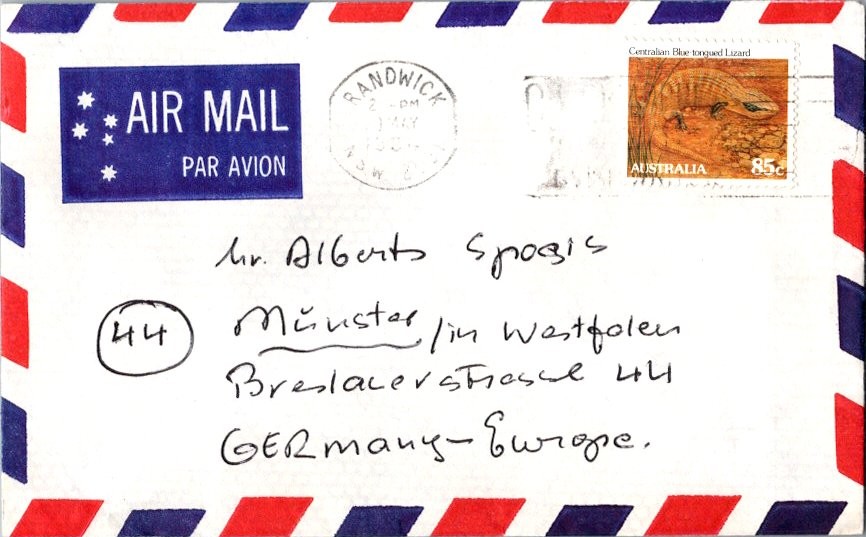 AIR MAIL
PAR AVION
RANDWICK
2 - PM
1 MAY
N.S.W. 2
Centralian Blue-tongued Lizard
AUSTRALIA 85c
Mr. Alberts Spogis
44
Münster/in Westfalen
Breslauerstrasse 44
GERmany-Europe.